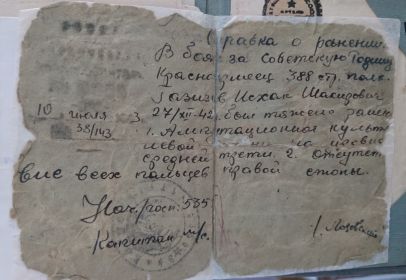 Справка о ранении.
В боях за Советскую Родину
Красноармеец 388 стр. полк.
Газизов Исхак
10 июля 3
27/XII-42 был тяжело ранен
38/143
1. Ампутационная культя
левой на уровне
средней трети. 2. Отсутст
вие всех пальцев правой стопы.
Нач. госп. 535
Капитан м/с.
/Лозовский